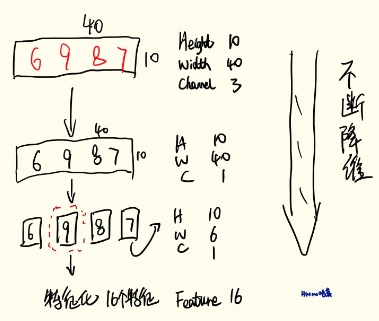 40
6 9 8 7
10
Height 10
Width 40
Channel 3
40
6 9 8 7
10
H 10
W 40
C 1
6 9 8 7
H 10
W 6
C 1
特征化 16个特征 Feature 16
不断降维